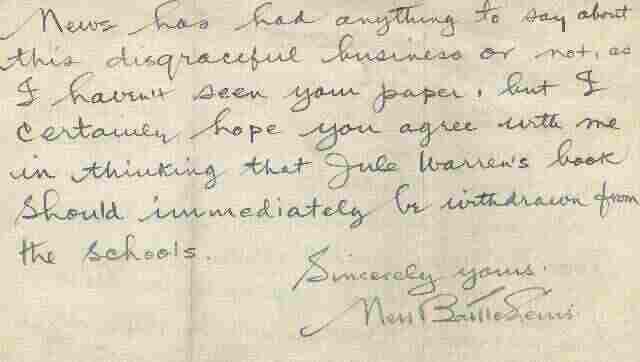 News has had anything to say about
this disgraceful business or not, as
I haven't seen your paper, but I
certainly hope you agree with me
in thinking that Jule Warren's book
should immediately be withdrawn from
the schools.
Sincerely yours.
Nell Battle Lewis